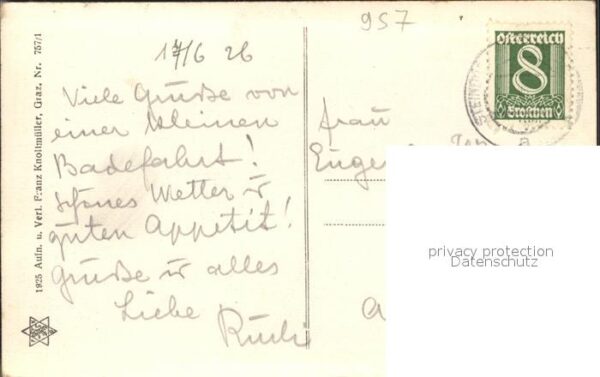 957
17/6 26
Viele Grüße von
einer kleinen
Badefahrt!
schönes Wetter u
guten Appetit!
Grüße u alles
Liebe
Frau
Österreich
8
Groschen
a
privacy protection
Datenschutz
1925 Aufn. u. Verl. Franz Knollmüller, Graz, Nr. 757/1